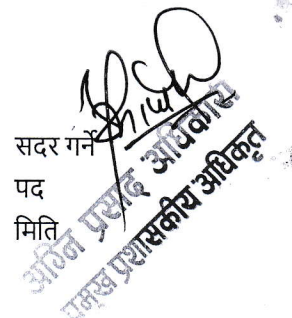 सदर गर्ने
पद
मिति
अग्नि प्रसाद अधिकारी
प्रमुख प्रशासकीय अधिकृत